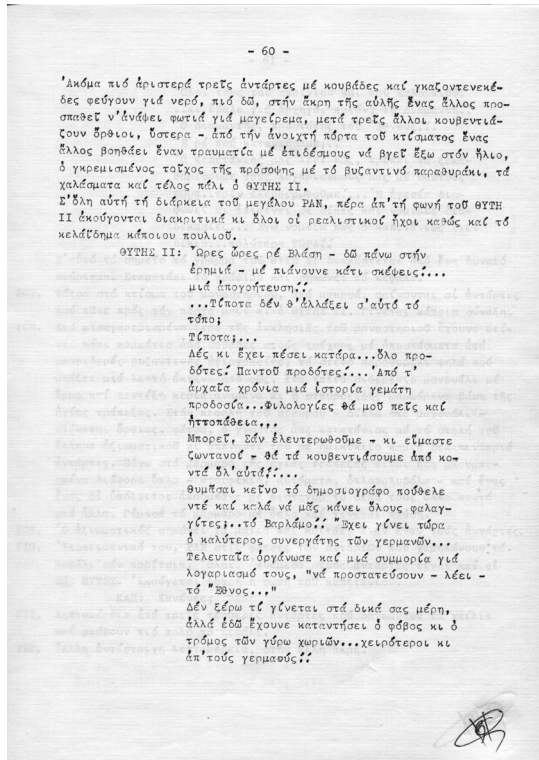 - 60 -
Ἀκόμα πιό ἀριστερά τρεῖς ἀντάρτες μέ κουβάδες καί γκαζοντενεκέ-
δες φεύγουν γιά νερό, πιό δῶ, στήν ἄκρη τῆς αὐλῆς ἕνας ἄλλος προ-
σπαθεῖ ν'ἀνάψει φωτιά γιά μαγείρεμα, μετά τρεῖς ἄλλοι κουβεντιά-
ζουν ὄρθιοι, ὕστερα - ἀπό τήν ἀνοιχτή πόρτα τοῦ κτίσματος ἕνας
ἄλλος βοηθάει ἕναν τραυματία μέ ἐπιδέσμους νά βγεῖ ἔξω στόν ἥλιο,
ὁ γκρεμισμένος τοῖχος τῆς πρόσοψης μέ τό βυζαντινό παραθυράκι, τά
χαλάσματα καί τέλος πάλι ὁ ΘΥΤΗΣ ΙΙ.
Σ'ὅλη αὐτή τή διάρκεια τοῦ μεγάλου PAN, πέρα ἀπ'τή φωνή τοῦ ΘΥΤΗ
ΙΙ ἀκούγονται διακριτικά κι ὅλοι οἱ ρεαλιστικοί ἦχοι καθώς καί τό
κελαΐδημα κάποιου πουλιοῦ.
ΘΥΤΗΣ ΙΙ: Ὧρες ὧρες ρέ Βλάση - δῶ πάνω στήν
ἐρημιά - μέ πιάνουνε κάτι σκέψεις!...
μιά ἀπογοήτευση!!
...Τίποτα δέν θ'ἀλλάξει σ'αὐτό τό
τόπο;
Τίποτα;...
Λές κι ἔχει πέσει κατάρα...ὅλο προ-
δότες! Παντοῦ προδότες!...Ἀπό τ'
ἀρχαῖα χρόνια μιά ἱστορία γεμάτη
προδοσία...Φιλολογίες θά μοῦ πεῖς καί
ἡττοπάθεια...
Μπορεῖ. Σάν ἐλευτερωθοῦμε - κι εἴμαστε
ζωντανοί - θά τά κουβεντιάσουμε ἀπό κο-
ντά ὅλ'αὐτά!!...
Θυμᾶσαι κεῖνο τό δημοσιογράφο πούθελε
ντέ καί καλά νά μᾶς κάνει ὅλους φαλαγ-
γίτες;..τό Βαρλάμο!! Ἔχει γίνει τώρα
ὁ καλύτερος συνεργάτης τῶν γερμανῶν...
Τελευταῖα ὀργάνωσε καί μιά συμμορία γιά
λογαριασμό τους, "νά προστατεύσουν - λέει -
τό Ἔθνος..."
Δέν ξέρω τί γίνεται στά δικά σας μέρη,
ἀλλά ἐδῶ ἔχουνε καταντήσει ὁ φόβος κι ὁ
τρόμος τῶν γύρω χωριῶν...χειρότεροι κι
ἀπ'τούς γερμαφύς!!